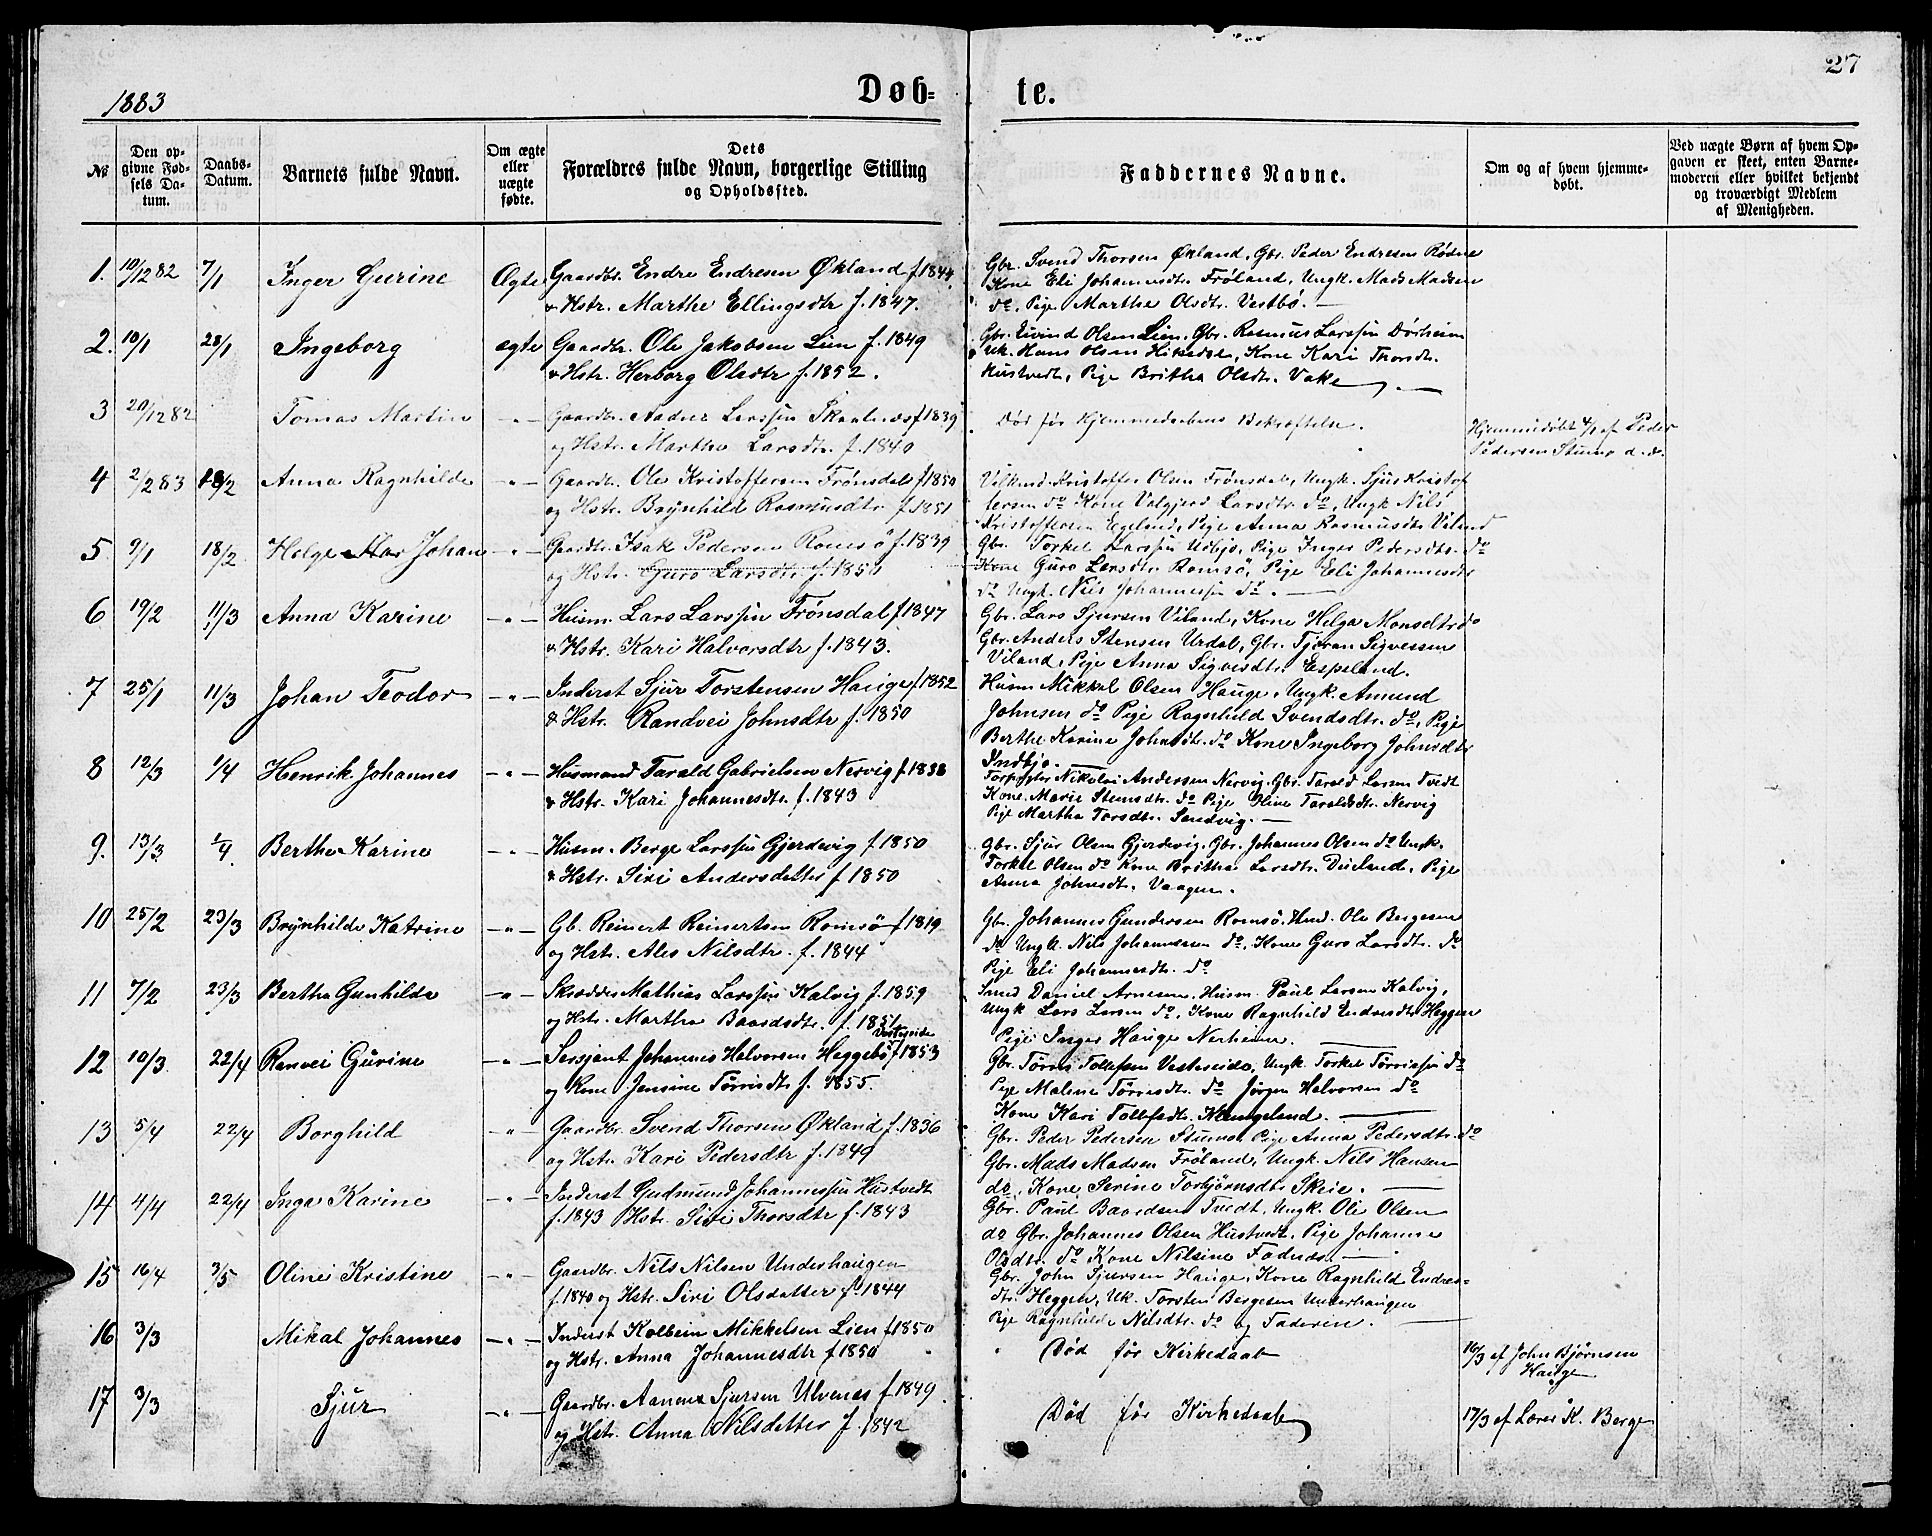 27
1883
Døb-
te.
№
Den op-
givne Fød-
sels Da-
tum.
Daabs-
Datum.
Barnets fulde Navn.
Om ægte
eller
uægte
fødte.
Dets
Forældres fulde Navn, borgerlige Stilling
og Opholdssted.
Faddernes Navne.
Om og af hvem hjemme-
døbt.
Ved uægte Børn af hvem Op-
gaven er skeet, enten Barne-
moderen eller hvilket bekjendt
og troværdigt Medlem
af Menigheden.
1. 10/12 82 7/1 Inger Gurine Ægte Gaardbr. Endre Endresen Økland f. 1844
& Hstr. Marthe Ellingsdtr f. 1847.
Gbr. Svend Thorsen Økland, Gbr. Peder Endresen Rødne
Kone Eli Johannesdtr. Frøland, Ungk. Mads Madsen
do, Pige Martha Olsdtr. Vestbö. —
2. 10/1 28/1 Ingeborg ægte Gaardbr. Ole Jakobsen Lien f. 1849
& Hstr. Herborg Olsdtr f. 1852.
Gbr. Eivind Olsen Lien, Gbr. Rasmus Larssen Dørheim
Uk. Hans Olsen Kone Kari Thorsdtr.
Hustvedt, Pige Britha Olsdtr. Vake —
3 20/12 82 Tomas Martin -„- Gaardbr. Aadne Larssen Skaalnes f 1839
og Hstr. Martha Larsdtr. f. 1840
Død før Hjemmedaabens Bekræftelse.
Hjemmedøbt af Peder
Pedersen Stumo d. æ.
4 2/2 83 18/2 Anna Ragnhilde -„- Gaardbr. Ole Kristoffersen Frønsdal f 1850
og Hstr. Brÿnhild Rasmusdtr f. 1851
Kristoffer Olsen Frønsdal, Ungk. Sjur Kristof
fersen do Kone Valgjerd Larsdtr. do, Ungk Nils
Kristoffersen Egeland, Pige Anna Rasmusdtr Viland
5. 9/1 18/2 Helge Johan -„- Gaardbr. Isak Pedersen Romsö f. 1839
og Hstr. Guro Larsdtr. f. 1850
Gbr. Torkel Larssen Udbjo, Pige Inger Pedersdtr. do
Kone Guro Larsdtr Romsö, Pige Eli Johannesdtr
do Ungk. Nils Johannessen do. —
6 19/2 11/3 Anna Karine -„- Husm. Lars Larssen Frønsdal f 1847
& Hstr. Kari Halvorsdtr f. 1843.
Gbr. Lars Sjursen Viland, Kone Helga Monsdtr do
Gbr. Anders Stensen Urdal, Gbr. Tjøran Sigvessen
Viland, Pige Anna Sigvesdtr. Espeland.
7 25/1 11/3 Johan Teodor -„- Inderst Sjur Torstensen Hauge f. 1852
& Hstr. Randvei Johnsdtr f. 1850
Husm Mikkel Olsen Hauge, Ungk. Amund
Johnsen do Pige Ragnhild Svendsdtr. do, Pige
Berthe Karine Johnsdtr. do Kone Ingeborg Johnsdtr
Indbjo. —
8 12/3 1/4 Henrik Johannes -„- Husmand Tarald Gabrielsen Nervig f. 1838
& Hstr. Kari Johannesdtr. f. 1843
Nikolai Andersen Nervig, Gbr. Tarald Larsen Tvedt
Kone Marie Stensdtr. do Pige Oline Taraldsdtr. Nervig
Pige Martha Torsdtr. Sandvig. —
9. 13/3 1/4. Bertha Karine -„- Husm. Berge Larssen Gjerdevig f. 1850
& Hstr. Siri Andersdatter f 1850
Gbr. Sjur Olsen Gjerdevig, Gbr. Johannes Olsen do Ungk.
Torkel Olsen do Kone Britha Larsdtr. Dueland, Pige
Anna Johnsdtr. Vaagen.
10 25/2 23/3 Brÿnhilde Katrine -„- Gb. Reinert Reinertsen Romsö f 1819
og Hstr. Ales Nilsdtr. f. 1844
Gbr. Johannes Gundersen Romsö, Husd. Ole Bergesen
do Ungk. Nils Johannessen do, Kone Guro Larsdtr. do
Pige Eli Johannesdtr. do
11 7/2 23/3 Bertha Gunhilda -„- Skrædder Mathias Larssen Kalvig f. 1859
og Hstr. Martha Baardsdtr. f. 1851
Smed Daniel Arnesen, Husm. Paul Larsen Kalvig,
Ungk Lars Larsen do, Kone Ragnhild Endresdtr Heggen
Pige Inger Hauge Nerheim. —
12 10/3. 22/4 Ranvei Gurine -„- Sersjant Johannes Halvorsen Heggebø Vesteside f 1853
og Kone Jensine Tørrisdtr f. 1855.
Gbr. Tørris Tollefsen Vesteseida, Ungk. Torkel Tørrissen do
Pige Malene Tørrisdtr. do Jørgen Halvorsen do
Kone Kari Tollefsdtr. Klungeland. —
13 5/4 22/4 Borghild -„- Gaardbr. Svend Thorsen Økland f. 1836
og Hstr. Kari Pedersdtr f. 1849
Gbr. Peder Pedersen Stumo, Pige Anna Pedersdtr. do
Gbr. Mads Madsen Frøland, Ungk. Nils Hansen
do, Kone Serine Torbjørnsdtr Skeie. —
14 4/4 22/4 Inga Karine -„- Inderst Gudmund Johannessen Hustvedt
f. 1843 Hstr. Siri Thorsdtr f. 1843
Gbr. Paul Baardsen Tvedt, Ungk. Ole Olsen
do Gbr. Johannes Olsen Hustvedt, Pige Johanne
Olsdtr. do Kone Nilsine Fadnes. —
15 16/4 3/5 Oline Kristine -„- Gaardbr. Nils Nilsen Underhaugen
f. 1840 og Hstr. Siri Olsdatter f 1844
Gbr. John Sjursen Hauge, Kone Ragnhild Endres-
dtr. Heggen, Uk. Torsten Bergesen Underhaugen
Pige Ragnhilde Nilsdtr. do og Faderen. —
16 3/3 Mikal Johannes -„- Inderst Kolbein Mikkelsen Lien f 1850
og Hstr. Anna Johannesdtr f 1850
Død før Kirkedaab
16/3 af John Bjørnsen
Hauge
17 3/3 Sjur -„- Gaardbr. Aanen Sjursen Ulvenes f 1849
og Hstr. Anna Nilsdatter f. 1842
Død før Kirkedaab
17/3 af Lærer K. Berge